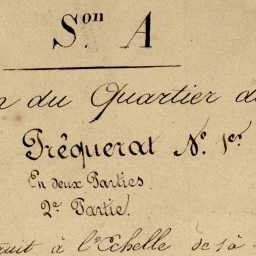 Son A
n du Quartier d
Frêquerat No. 1er
En deux Parties.
2e Partie.
à l'Echelle de 1 à